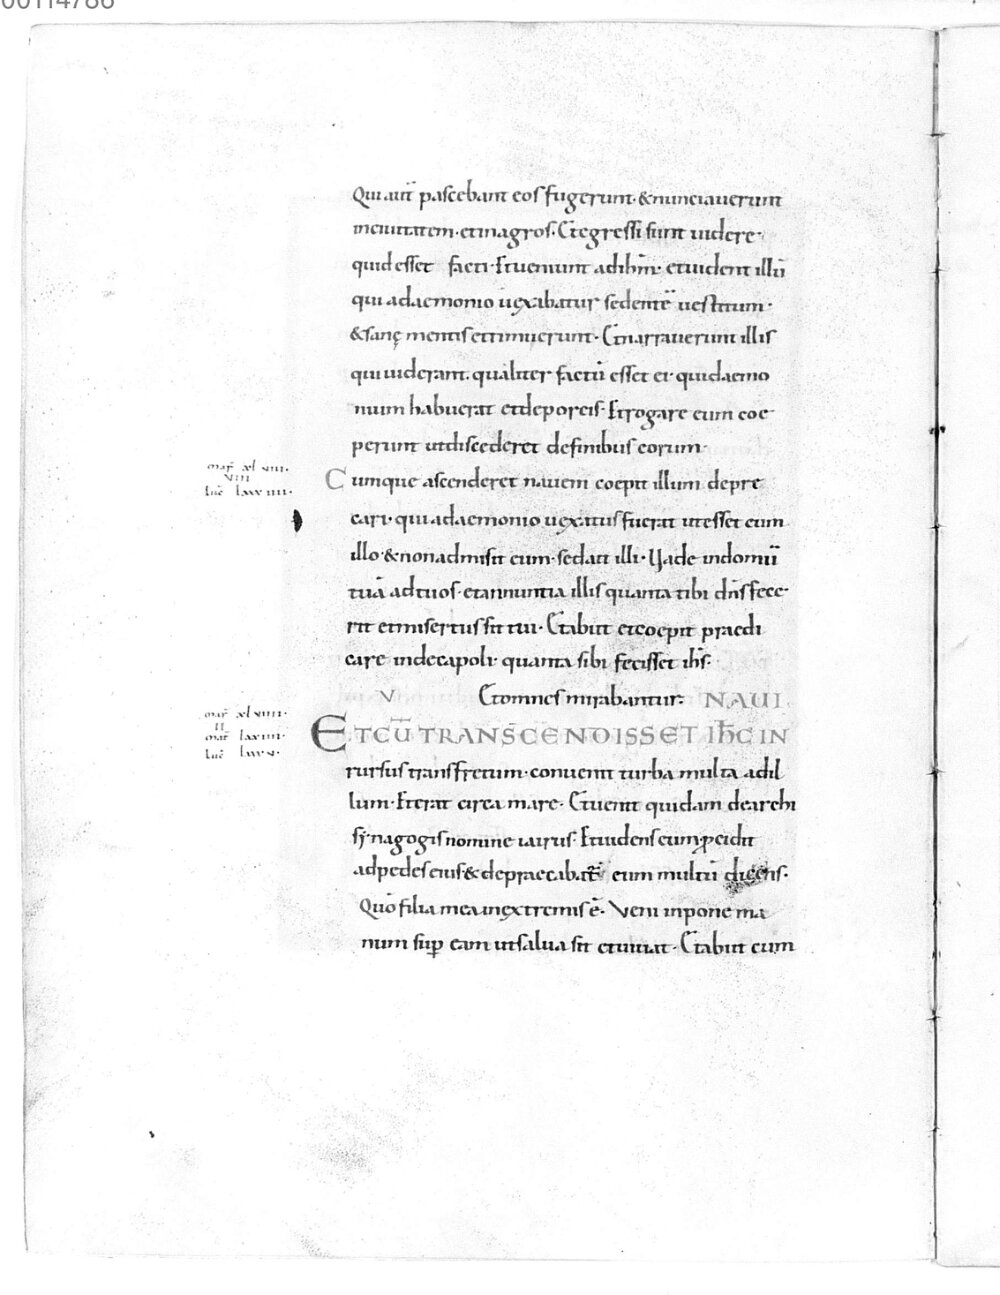 00114786
Qui aut̄ pascebant eos fugerunt· & nunciauerunt
inciuitatem· et inagros· Et egressi sunt uidere·
quid esset facti· Et ueniunt ad ih̄m· et uident illū
qui a daemonio uexabatur sedentē uestitum·
& sanę mentis et timuerunt· Et narrauerunt illis
qui uiderant· qualiter factū esset ei qui daemo
nium habuerat et de porcis· Et rogare eum coe
perunt ut discederet de finibus eorum·
mar̄ xl viii·
viii
luc̄ lxxx iiii·
Cumque ascenderet nauem coepit illum depre
cari· qui a daemonio uexatus fuerat ut esset cum
illo· & non admisit eum· sed ait illi· Uade in domū
tuā ad tuos· et annuntia illis quanta tibi dn̄s fece
rit et misertus sit tui· Et abiit et coepit praedi
care in decapoli· quanta sibi fecisset ih̄s·
V Et omnes mirabantur· NAUI
mar̄ xl viiii·
II
mat̄ lxx iiii·
luc̄ lxxx v·
ET CŪ TRANSCENDISSET IH̄C IN
rursus trans fretum· conuenit turba multa ad il
lum· Et erat circa mare· Et uenit quidam de archi
synagogis nomine iairus· Et uidens eum ꝓcidit
ad pedes eius & depraecabat̄ eum multū dicens·
Quō filia mea in extremis ē· Veni inpone ma
num sup̄ eam ut salua sit et uiuat· Et abiit cum